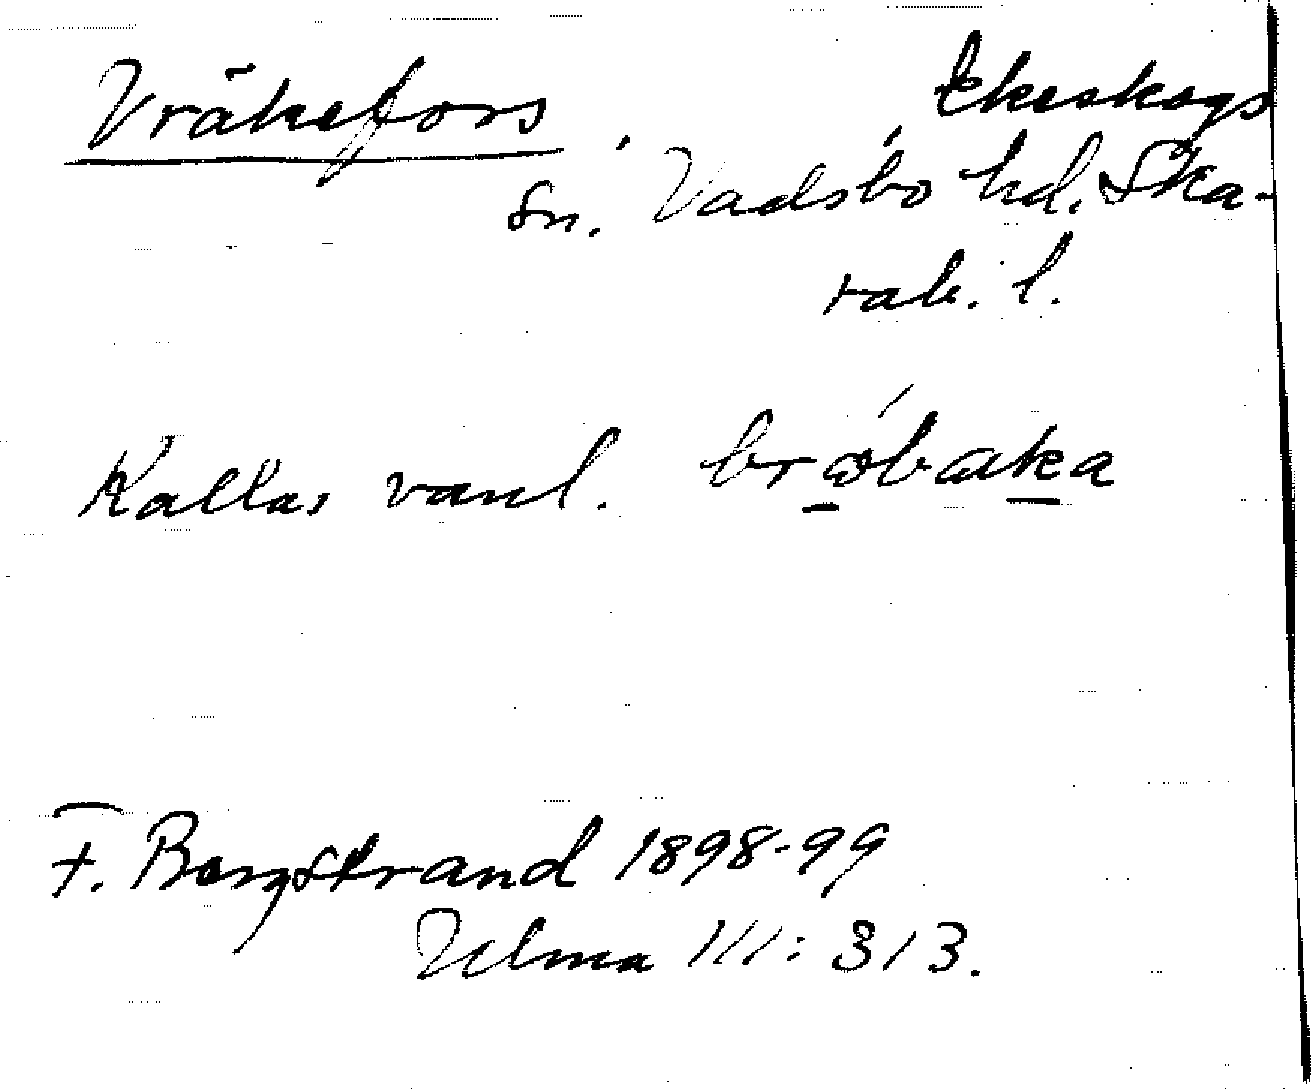 Vråkefors, Ekeskogs
Sn. Vadsbo hd. Ska-
rab. l.
Kallas vanl.
F. Bergstrand 1898-99
Ulma III: 313.